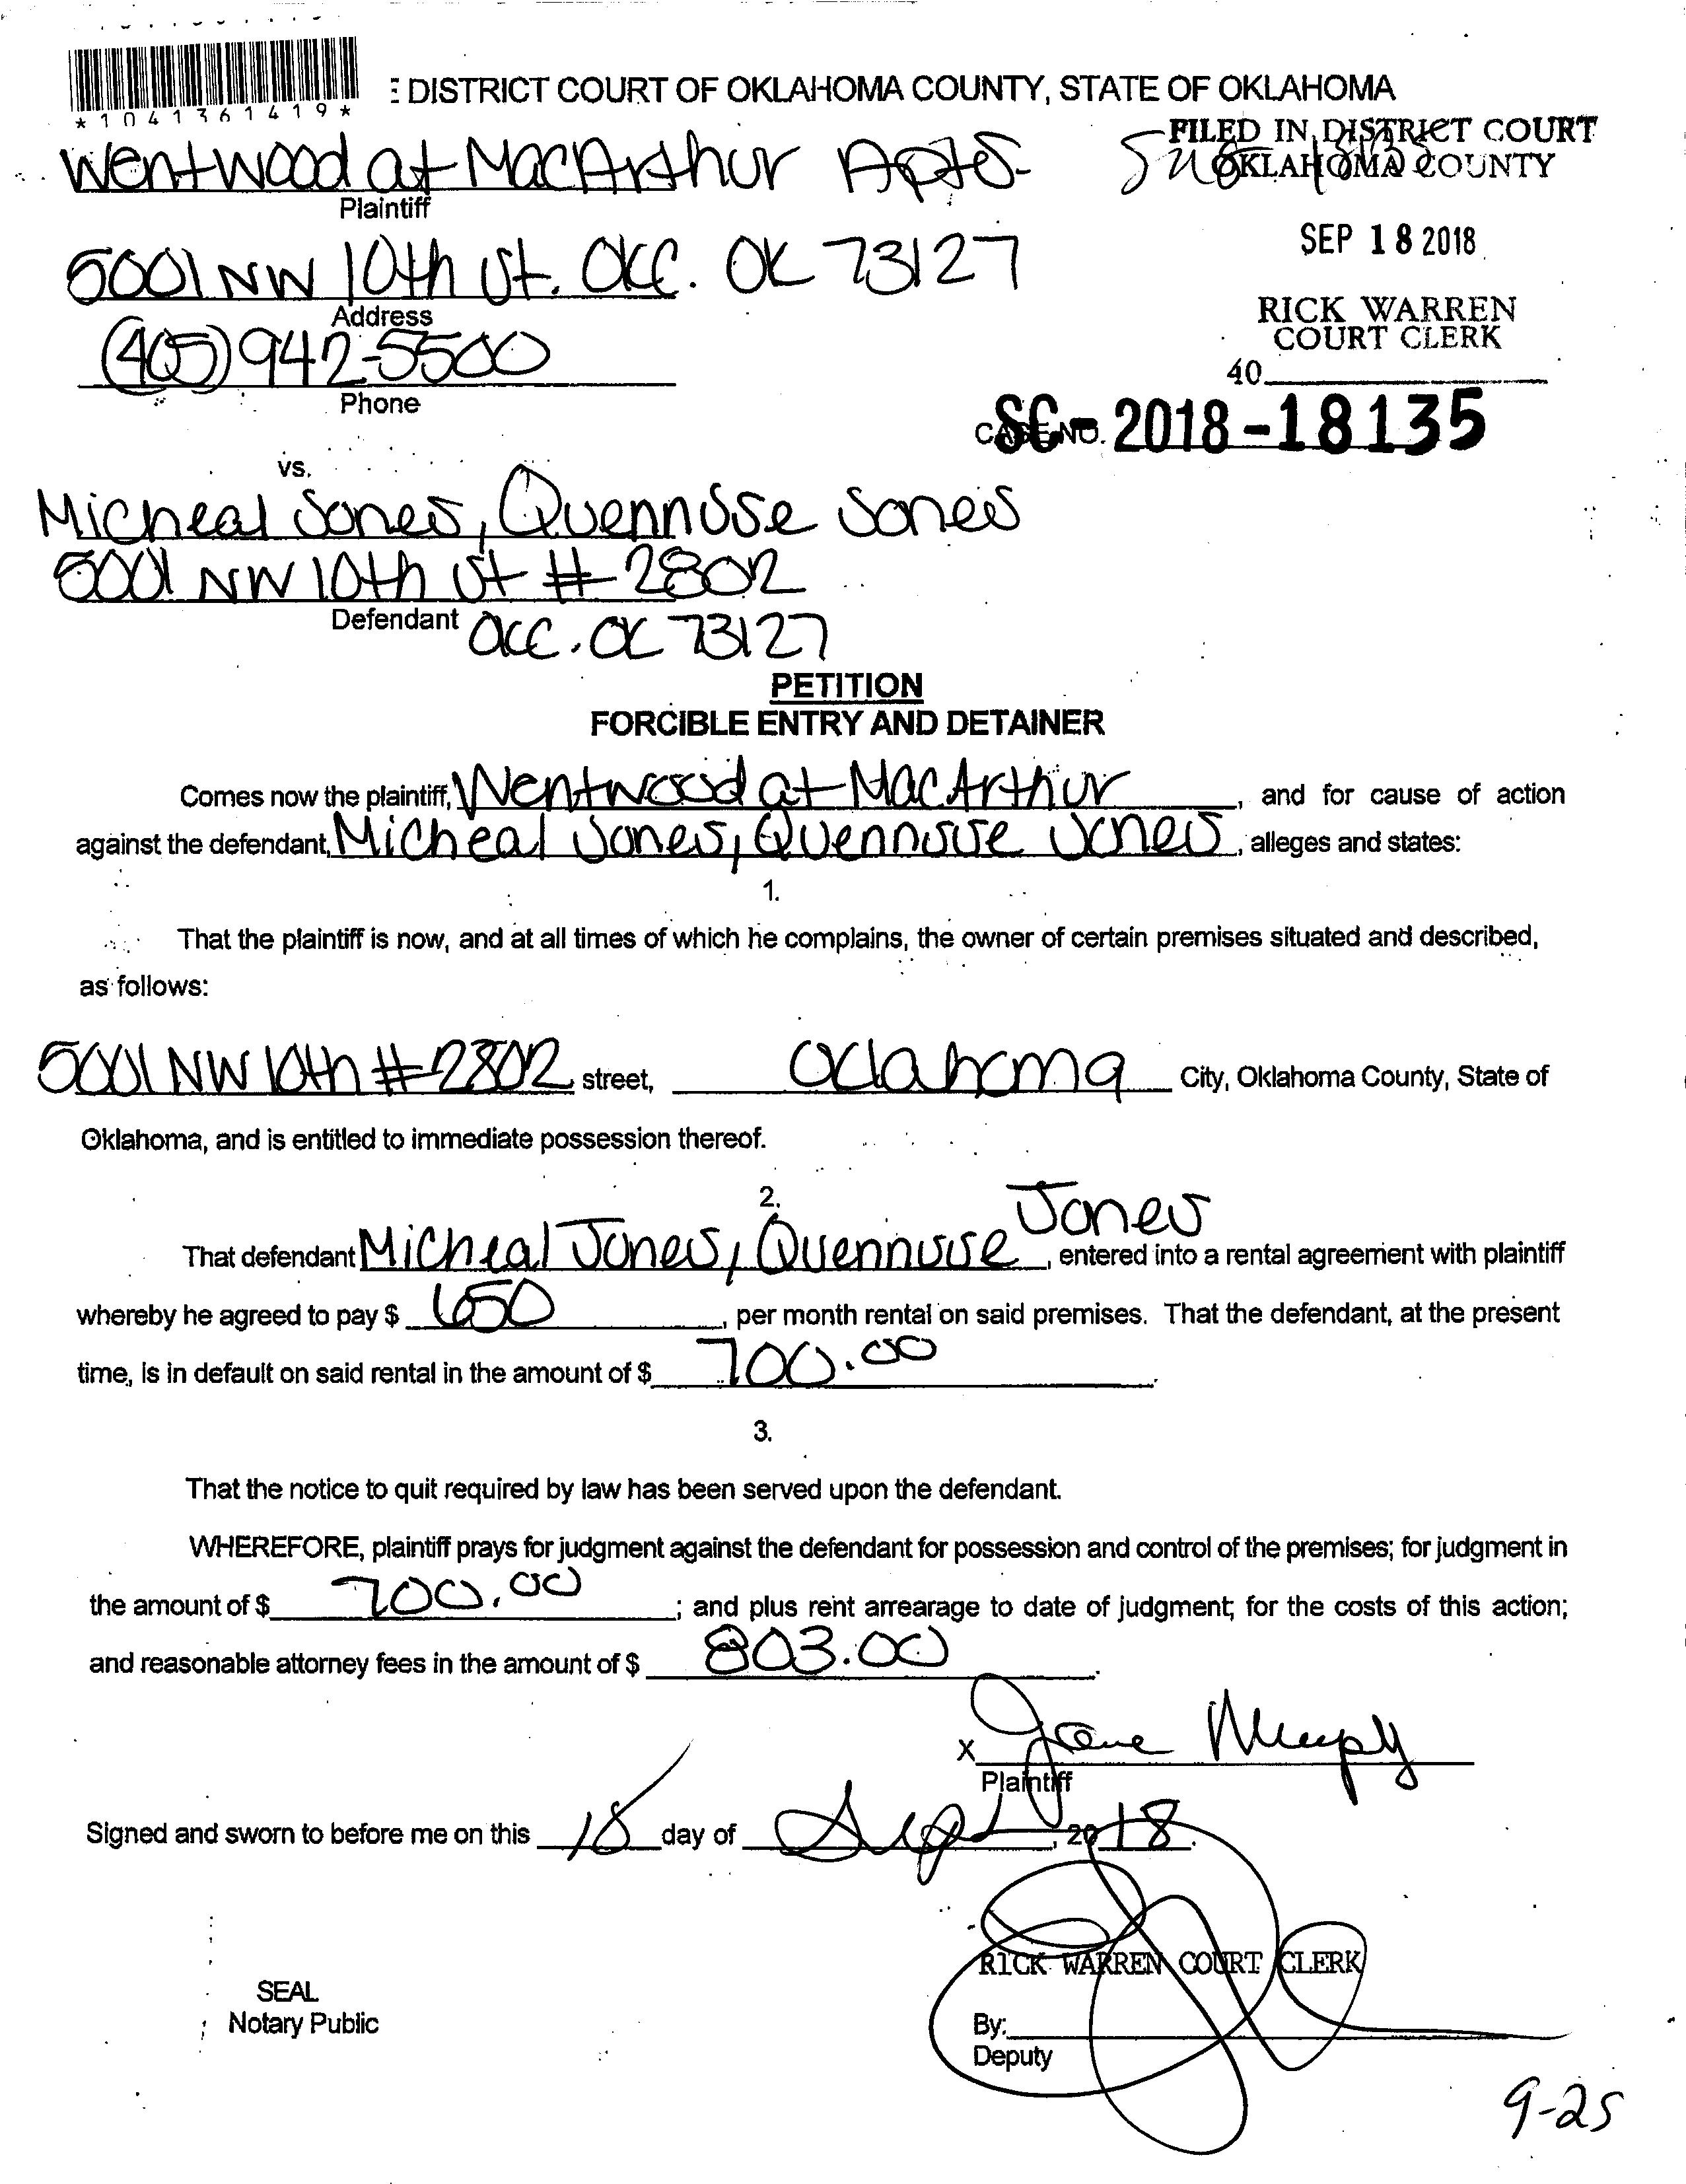 *1041361419*
DISTRICT COURT OF OKLAHOMA COUNTY, STATE OF OKLAHOMA
FILED IN DISTRICT COURT
OKLAHOMA COUNTY
Wentwood at MacArthur Apts.
Plaintiff
SEP 18 2018
5001 NW 10th St. OKC. OK 73127
Address
RICK WARREN
COURT CLERK
(405) 942-5500
Phone
40
CASE NO. SC-2018-18135
vs.
Micheal Jones, Quennuse Jones
5001 NW 10th St # 2802
Defendant
OKC. OK 73127
PETITION
FORCIBLE ENTRY AND DETAINER
Comes now the plaintiff, Wentwood at MacArthur, and for cause of action
against the defendant, Micheal Jones, Quennuse Jones, alleges and states:
1.
That the plaintiff is now, and at all times of which he complains, the owner of certain premises situated and described,
as follows:
5001 NW 10th # 2802 street, Oklahoma City, Oklahoma County, State of
Oklahoma, and is entitled to immediate possession thereof.
2.
That defendant Micheal Jones, Quennuse Jones, entered into a rental agreement with plaintiff
whereby he agreed to pay $ 650, per month rental on said premises. That the defendant, at the present
time, is in default on said rental in the amount of $ 700.00.
3.
That the notice to quit required by law has been served upon the defendant.
WHEREFORE, plaintiff prays for judgment against the defendant for possession and control of the premises; for judgment in
the amount of $ 700.00; and plus rent arrearage to date of judgment; for the costs of this action;
and reasonable attorney fees in the amount of $ 803.00.
X Jane Murphy
Plaintiff
Signed and sworn to before me on this 18 day of Sept, 2018.
RICK WARREN COURT CLERK
SEAL
Notary Public
By:
Deputy
9-25